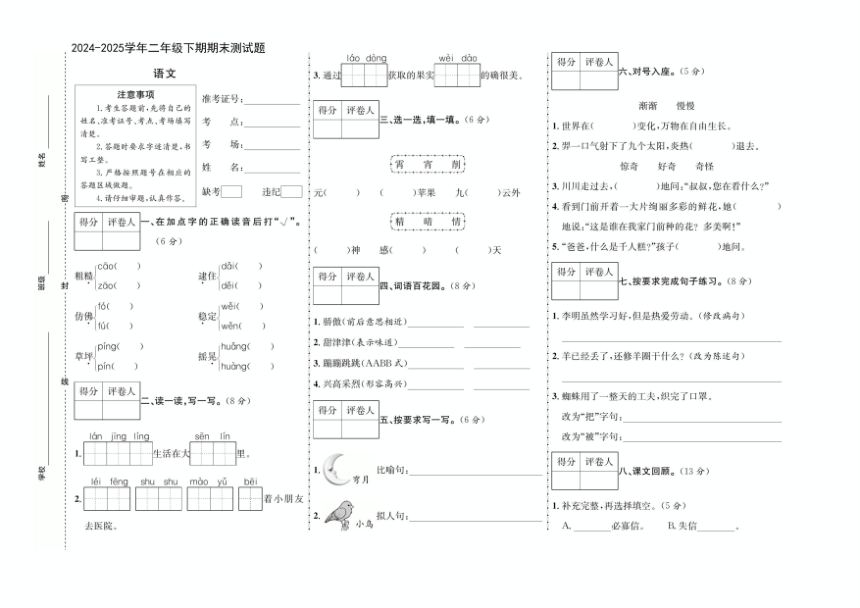 2024-2025学年二年级下期期末测试题
语文
注意事项
1.考生答题前,先将自己的
姓名、准考证号、考点、考场填写
清楚。
2.答题时要求字迹清楚,书
写工整。
3.严格按照题号在相应的
答题区域做题。
4.请仔细审题,认真作答。
准考证号:
考 点:
考 场:
姓 名:
缺考 违纪
姓名
班级
学校
密
封
线
得分 评卷人
一、在加点字的正确读音后打“√”。
(6分)
粗糙 cāo( ) zāo( )
逮住 dǎi( ) děi( )
仿佛 fó( ) fú( )
稳定 wěi( ) wěn( )
草坪 píng( ) pín( )
摇晃 huǎng( ) huàng( )
得分 评卷人
二、读一读,写一写。(8分)
lán jīng líng sēn lín
1. 生活在大 里。
léi fēng shu shu mào yǔ bēi
2. 着小朋友
去医院。
láo dòng wèi dào
3.通过 获取的果实 的确很美。
得分 评卷人
三、选一选,填一填。(6分)
霄 宵 削
元( ) ( )苹果 九( )云外
精 晴 情
( )神 感( ) ( )天
得分 评卷人
四、词语百花园。(8分)
1.骄傲(前后意思相近)
2.甜津津(表示味道)
3.蹦蹦跳跳(AABB式)
4.兴高采烈(形容高兴)
得分 评卷人
五、按要求写一写。(6分)
1. 弯月 比喻句:
2. 小鸟 拟人句:
得分 评卷人
六、对号入座。(5分)
渐渐 慢慢
1.世界在( )变化,万物在自由生长。
2.羿一口气射下了九个太阳,炎热( )退去。
惊奇 好奇 奇怪
3.川川走过去,( )地问:“叔叔,您在看什么?”
4.看到门前开着一大片绚丽多彩的鲜花,她( )
地说:“这是谁在我家门前种的花?多美啊!”
5.“爸爸,什么是千人糕?”孩子( )地问。
得分 评卷人
七、按要求完成句子练习。(8分)
1.李明虽然学习好,但是热爱劳动。(修改病句)
2.羊已经丢了,还修羊圈干什么?(改为陈述句)
3.蜘蛛用了一整天的工夫,织完了口罩。
改为“把”字句:
改为“被”字句:
得分 评卷人
八、课文回顾。(13分)
1.补充完整,再选择填空。(5分)
A. 必嘉信。 B.失信 。